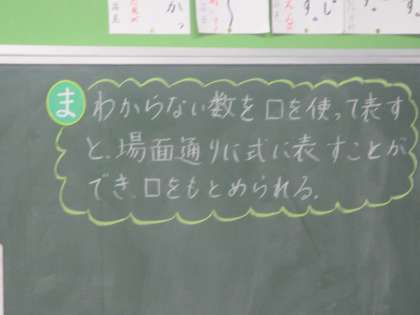 ま わからない数を□を使って表す
と、場面通りに式に表すことが
でき、□をもとめられる。